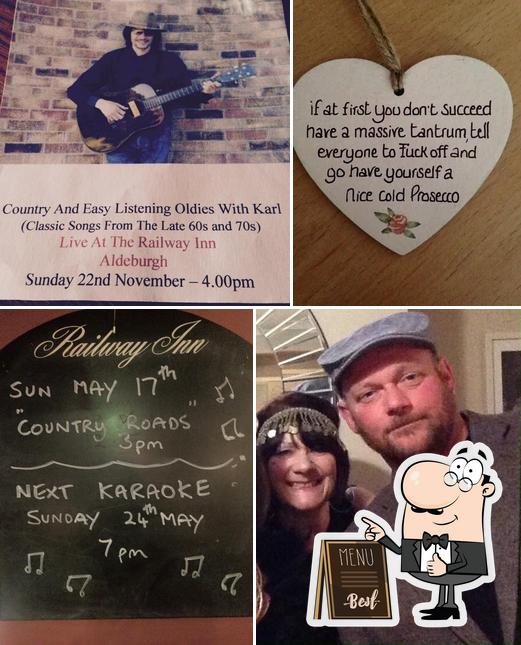 Country And Easy Listening Oldies With Karl
(Classic Songs From The Late 60s and 70s)
Live At The Railway Inn
Aldeburgh
Sunday 22nd November – 4.00pm
if at first you don't succeed
have a massive tantrum, tell
everyone to Fuck off and
go have yourself a
Nice cold Prosecco
Railway Inn
SUN MAY 17th
"COUNTRY ROADS"
3pm
NEXT KARAOKE
SUNDAY 24th MAY
7pm
MENU
Best